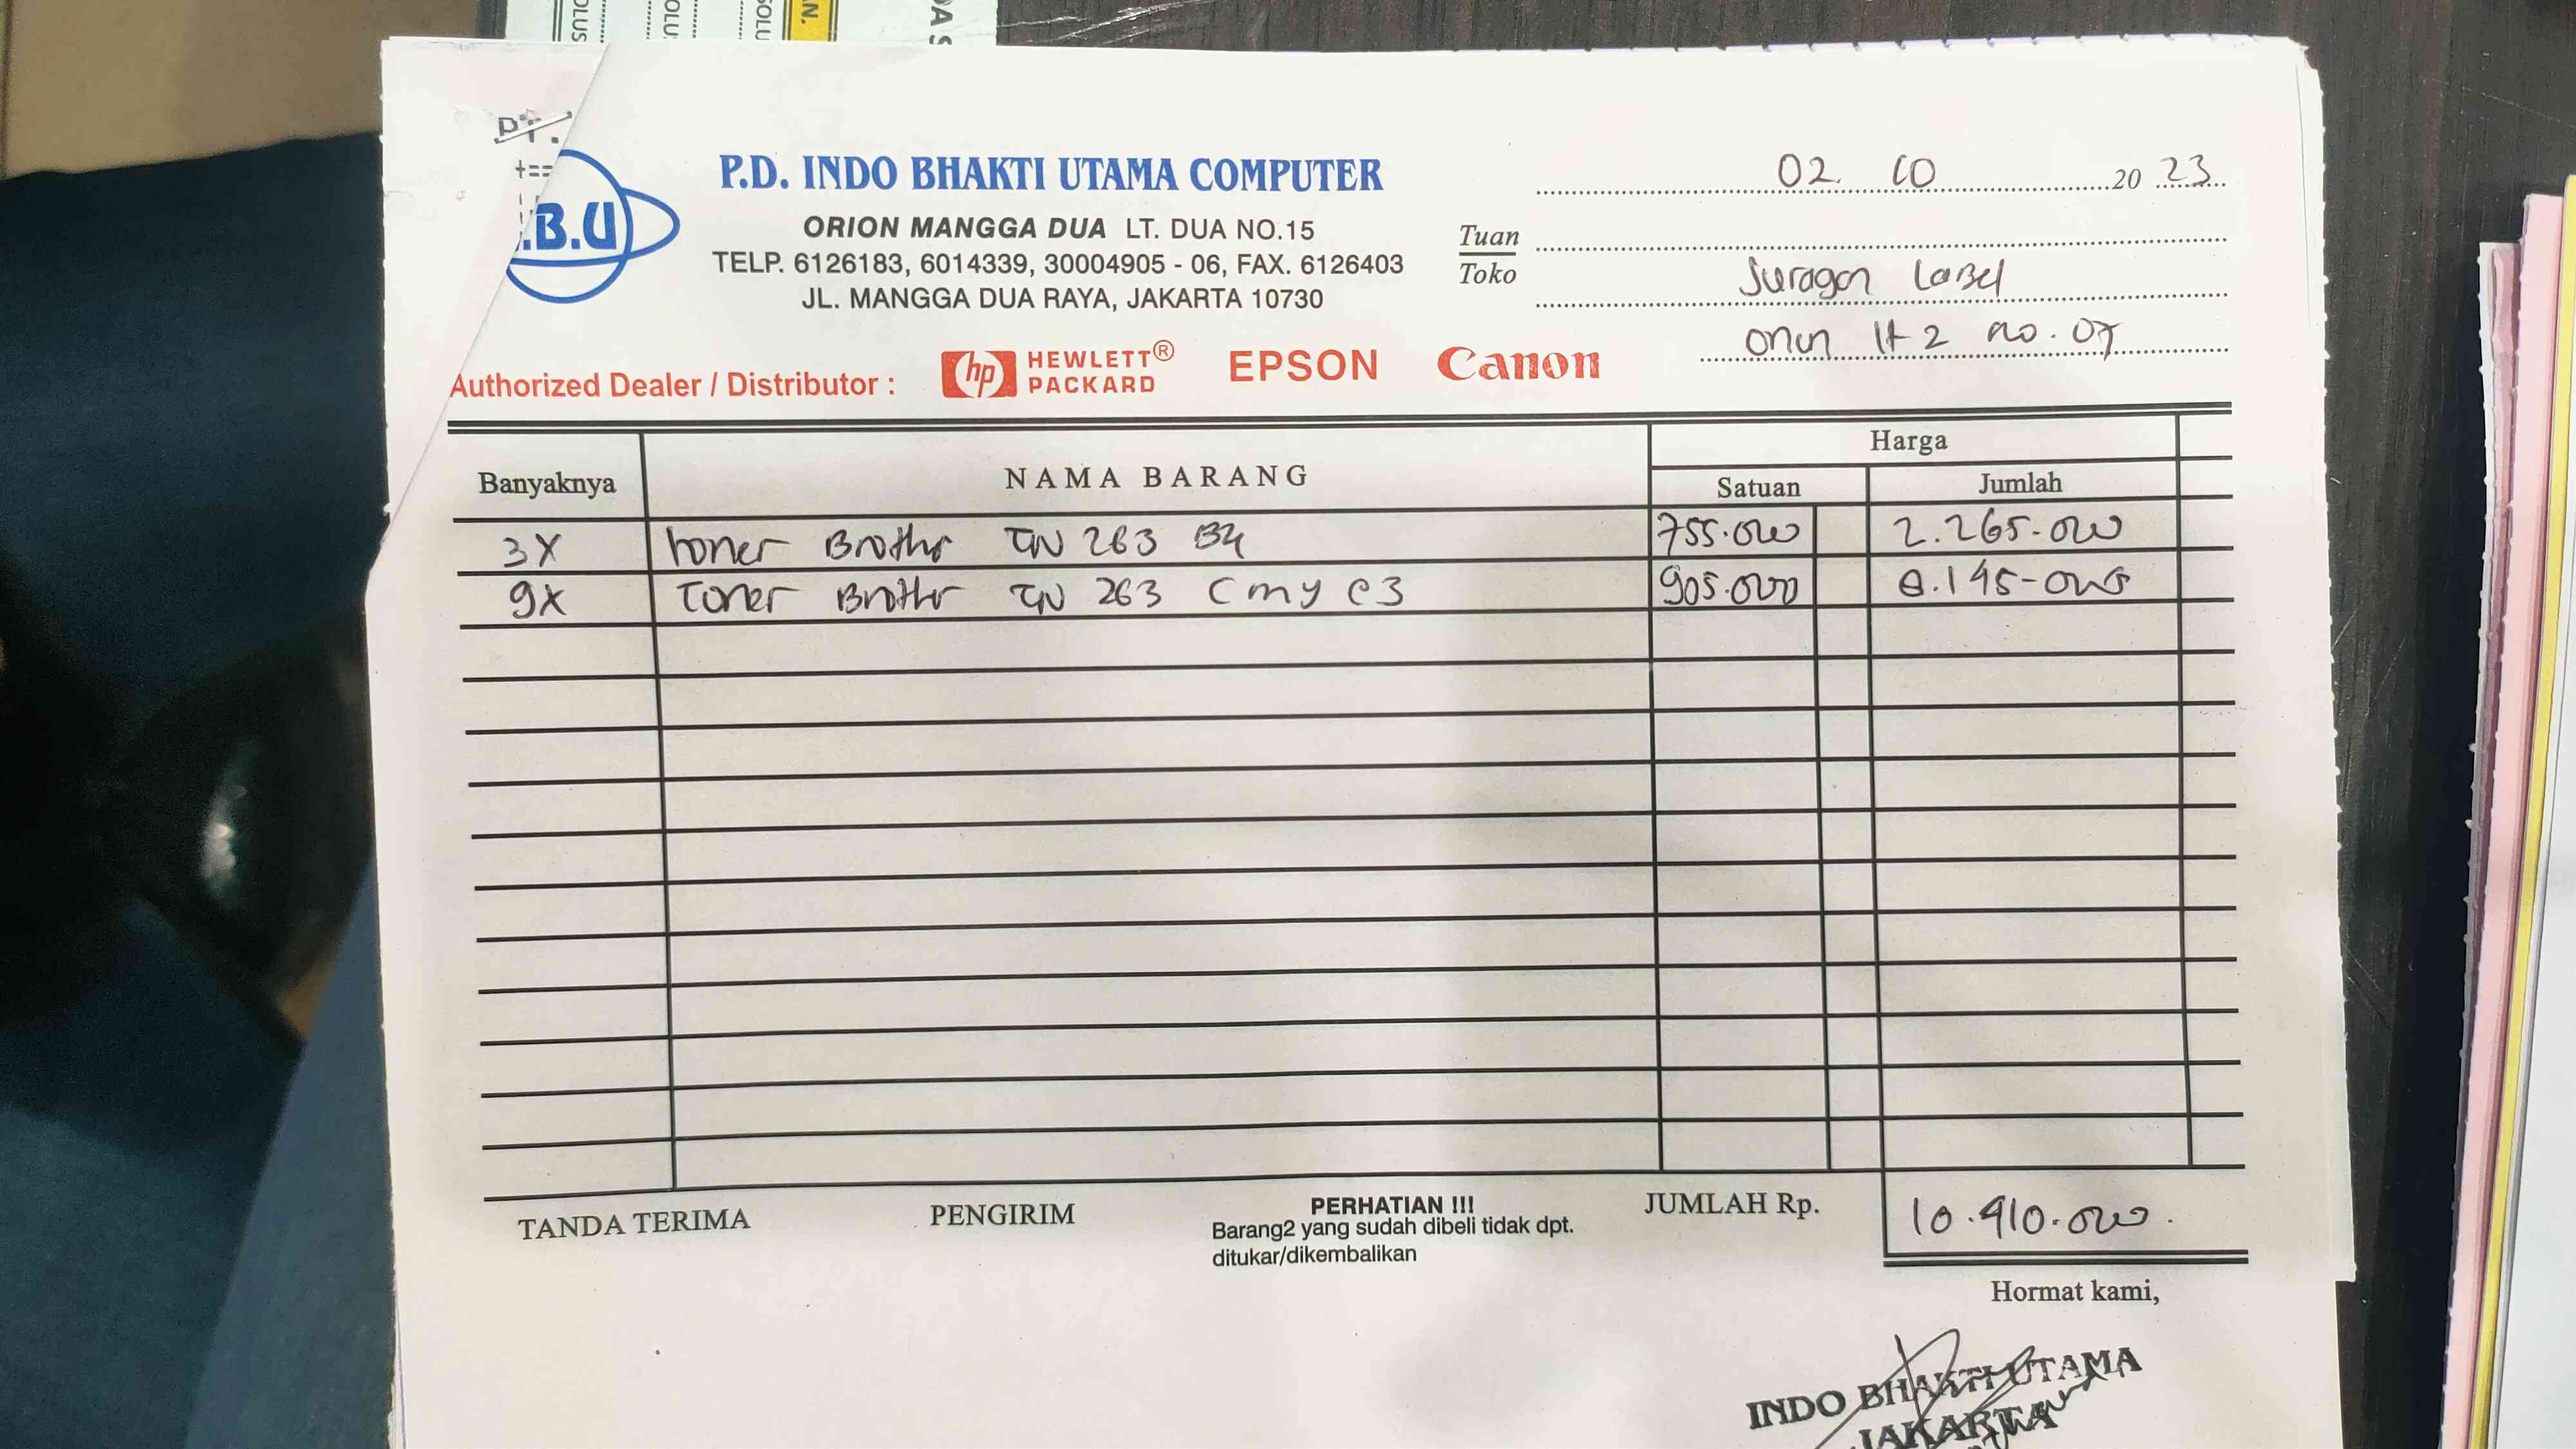 OLUS
OLU
SOLU
N.
DA S
PT.
+==
.B.U
P.D. INDO BHAKTI UTAMA COMPUTER
ORION MANGGA DUA LT. DUA NO.15
TELP. 6126183, 6014339, 30004905 - 06, FAX. 6126403
JL. MANGGA DUA RAYA, JAKARTA 10730
02 10 20 23
Tuan
Toko
Juragan Label
Orion lt 2 no. 07
Authorized Dealer / Distributor : hp HEWLETT® PACKARD EPSON Canon
Banyaknya NAMA BARANG Harga
Satuan Jumlah
3X toner Brother TN 263 BK 755.000 2.265.000
9X Toner Brother TN 263 Cmy @3 905.000 8.145.000
TANDA TERIMA PENGIRIM PERHATIAN !!! JUMLAH Rp. 10.410.000
Barang2 yang sudah dibeli tidak dpt.
ditukar/dikembalikan
Hormat kami,
INDO BHAKTI UTAMA
JAKARTA